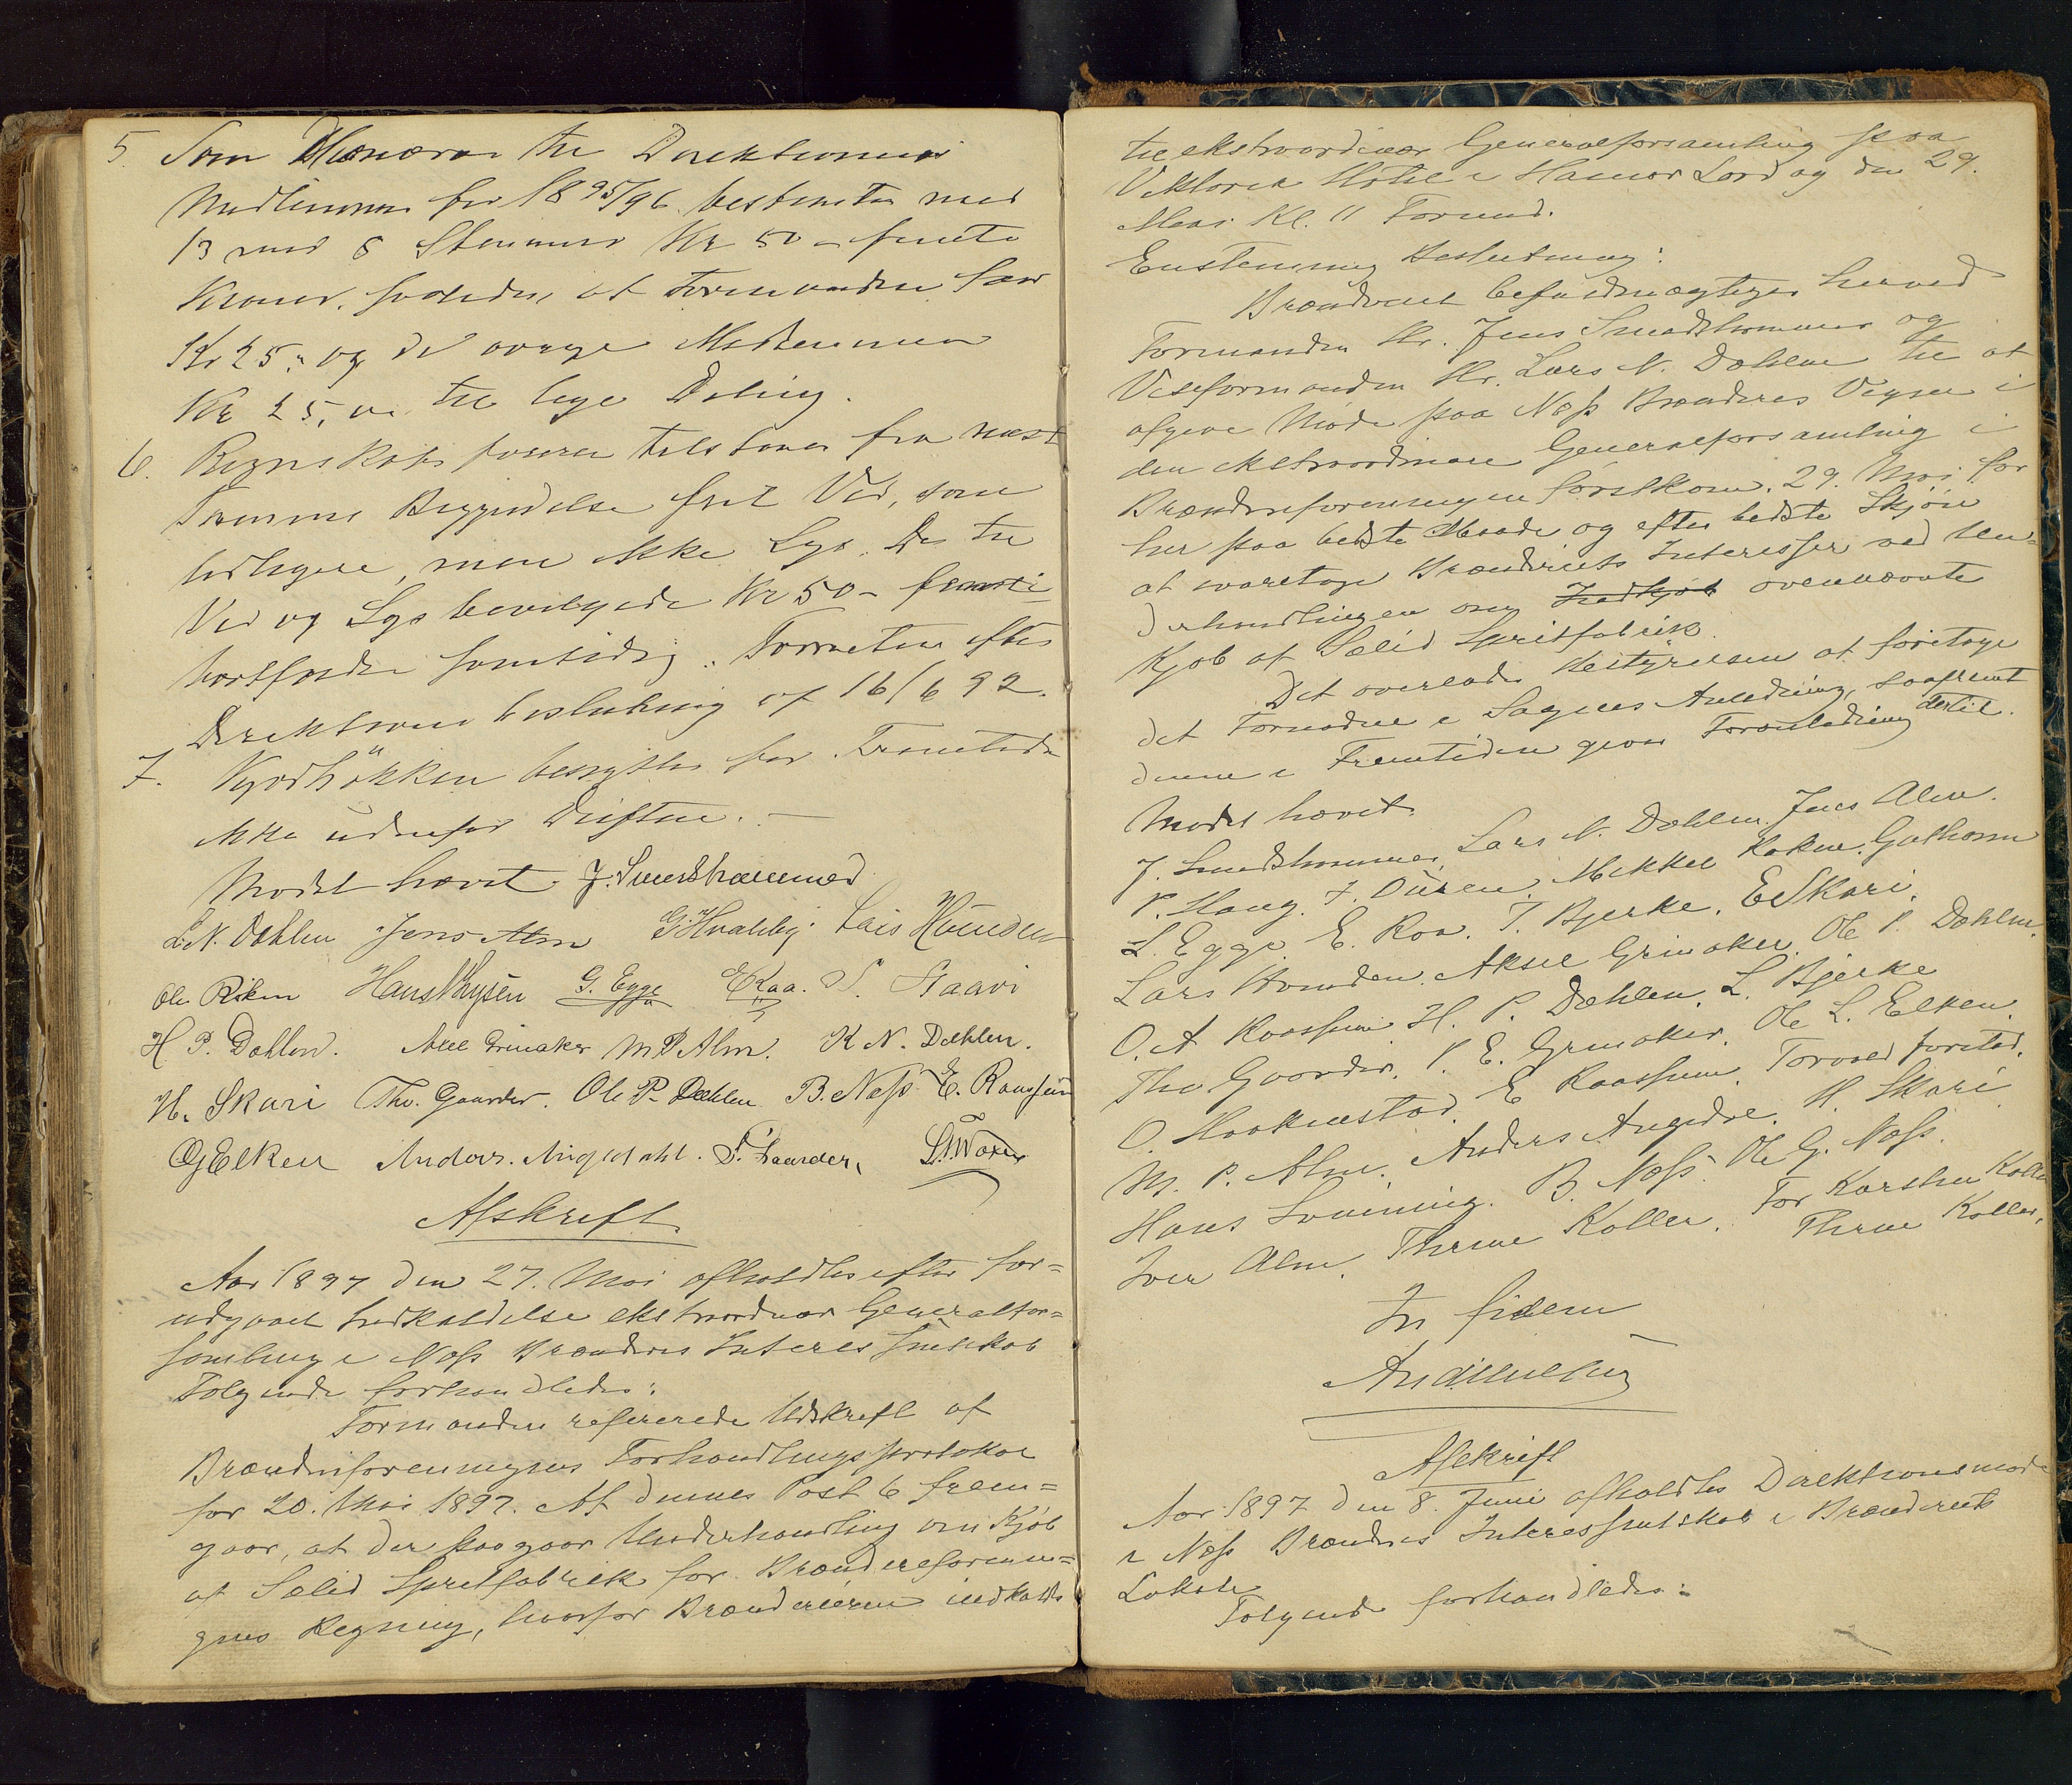 5. Som Honorar til Direktionens
Medlemmer for 1895/96 bestemtes med
13 mod 8 Stemmer Kr 50 – femti
Kroner, saaledes at Formanden faar
Kr 25,- og de øvrige Medlemmer
Kr 25, til lige Deling.
6. Regnskabsføreren tilstaaes fra næste
Termins Begyndelse frit Ved, som
tidligere, men ikke Lys. De til
Ved og Lys bevilgede Kr 50 – femti –
bortfalder samtidig.
Direktions beslutning af 16/6 92.
7. benyttes for Fremtiden
ikke udenfor Driften. –
Mødet hævet. J. Smedshammer
L. N. Dæhlen Jens Alm G. Hvalby Lars Hounden
Ole Røken Hans Thysen G. Egge E Raa. S. Staavi
H P. Dæhlen. Axel Grinaker M P Alm. K N. Dæhlen.
H. Skari Tho. Gaarder. Ole P. Dæhlen B. Næss E. Raassum
O G Elken Anders. P. Gaarder,
Afskrift.
Aar 1897 den 27. Mai afholdtes efter for=
udgaaet Indkaldelse ekstraordinær Generalfor=
samling i Næss Brænderis Interessentskab
Følgende forhandledes:
Formanden refererede Udskrift af
Brænderiforeningens Forhandlingsprotokol
for 20. Mai 1897. Af dennes Post 6 frem=
gaar, at der paagaar Underhandling om Kjøb
af Sælid Spritfabrik for Brænderiforenin=
gens Regning, hvorfor Brænderierne indkaldes
til ekstraordinær Generalforsamling paa
Viktoria Hotel i Hamar Lørdag den 29.
Mai Kl. 11 Formd.
Enstemmig Beslutning:
Brænderiet befuldmægtiger herved
Formanden Hr. Jens Smedshammer og
Viseformanden Hr. Lars N. Dæhlen til at
afgive Møde paa Næss Brænderis Vegne i
den ekstraordinære Generalforsamling i
Brænderiforeningen førstkom. 29. Mai for
her paa bedste Maade og efter bedste Skjøn
at varetage Brænderiets Interesser ved Un=
derhandlingen om Indkjøb ovennævnte
Kjøb af Sælid Spritfabrik.
Det overlades Bestyrelsen at foretage
det Fornødne i Sagens Anledning, saafremt
denne i Fremtiden giver Foranledning dertil.
Mødet hævet.
J. Smedshammer, Lars N. Dæhlen. Jens Alm.
P. Haug. J. Düren. Mikkel Røken. Guthorm
L. Egge E. Raa. T. Bjerke. E Skari.
Lars Hounden. Aksel Grinaker. Ole P. Dæhlen.
O. A Raassum H. P. Dæhlen. L. Bjerke
Tho Gaarder. P. E. Grinaker. Ole L. Elken.
O. Haakenstad. E Raassum. Torvald Jørstad.
M. P. Alm. Anders H. Skari
Hans B. Næss. Ole G. Næss.
Iver Alm. Thrine Koller. For Karsten Koller
Thrine Koller.
In fidem
Afskrift
Aar 1897 den 8. Juni afholdtes Direktionsmøde
i Næss Brænderis Interessentskab i Brænderiets
Lokale
Følgende forhandledes: